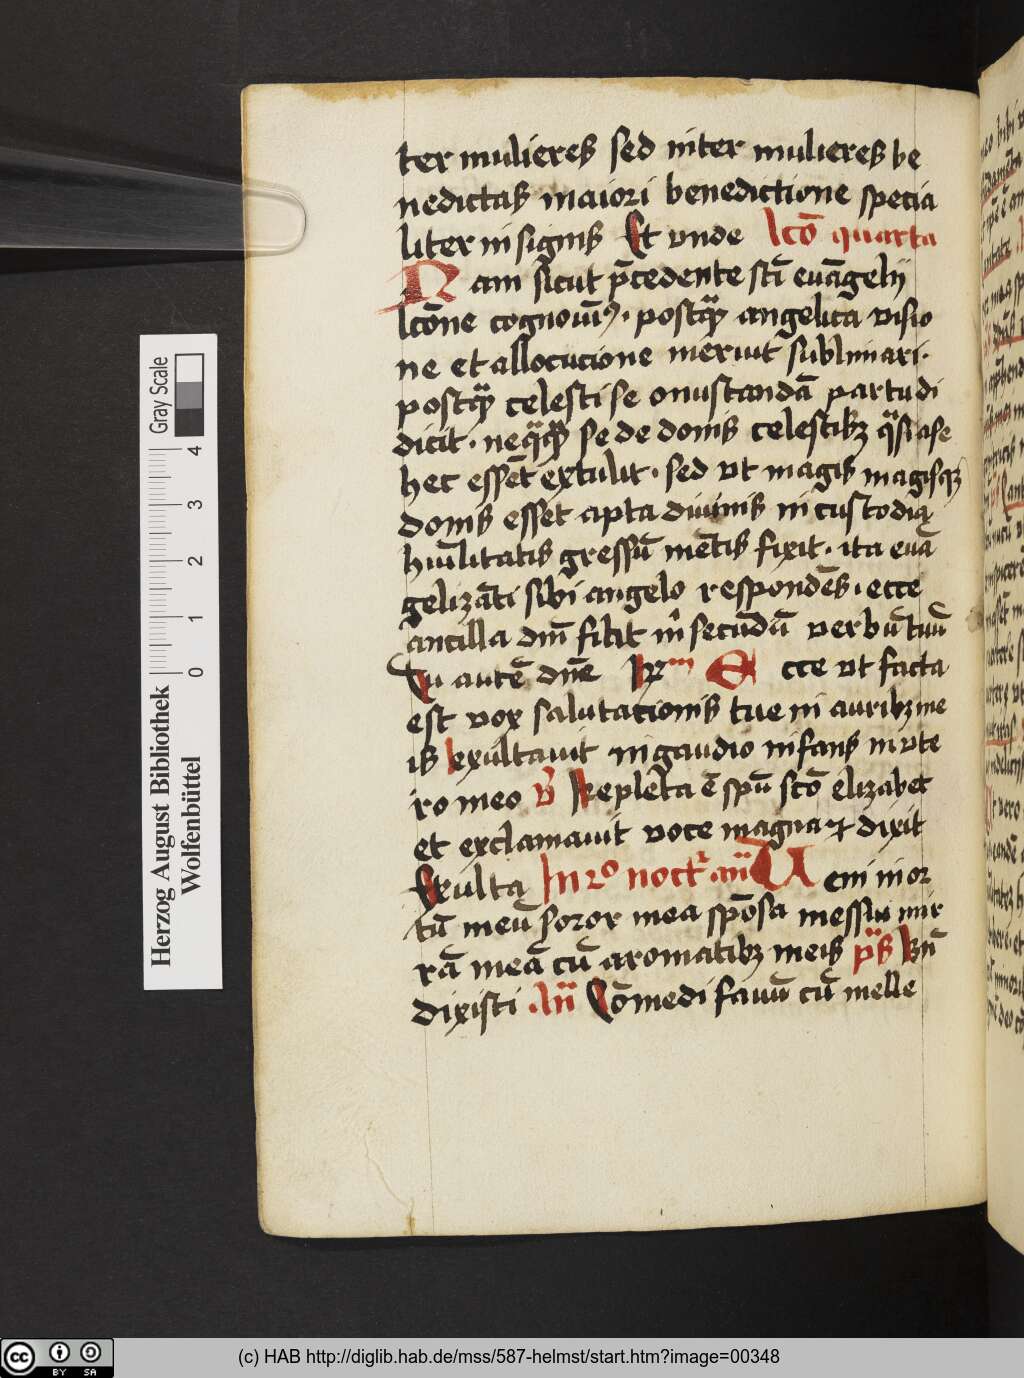 ter mulieres sed inter mulieres be
nedictas maiori benedictione specia
liter insignis Et unde lcō quarta
Nam sicut p̄cedente scī euāgelij
lcōne cognouim⁹· postq̄ȝ angelica visio
ne et allocucione meruit sublimari·
postq̄ȝ celesti se onustandā partu di
dicit· neq̄q̄ȝ se de donis celestibȝ q̄si a se
hec essēt extulit· sed ut magis magisqȝ
donis esset apta diuinis in custodia
hūilitatis gressū mētis fixit· ita euā
gelizāti sibi angelo respondēs· ecce
ancilla dn̄i fiat m̄ secūdū verbū tuū
Tu autē dn̄e Rm Ecce ut facta
est vox salutationis tue in auribȝ me
is exultauit in gaudio infans in ute
ro meo v̄ Repleta ē spū scō elizabet
et exclamauit voce magna et dixit
Exulta In 2o noct an̄ Veni in or
tū meū soror mea spōsa messui mir
rā meā cū aromatibȝ meis p̄s Bn̄
dixisti An̄ Cōmedi fauū cū melle
Herzog August Bibliothek
Wolfenbüttel
Gray Scale
0 1 2 3 4
(c) HAB http://diglib.hab.de/mss/587-helmst/start.htm?image=00348
cc BY SA